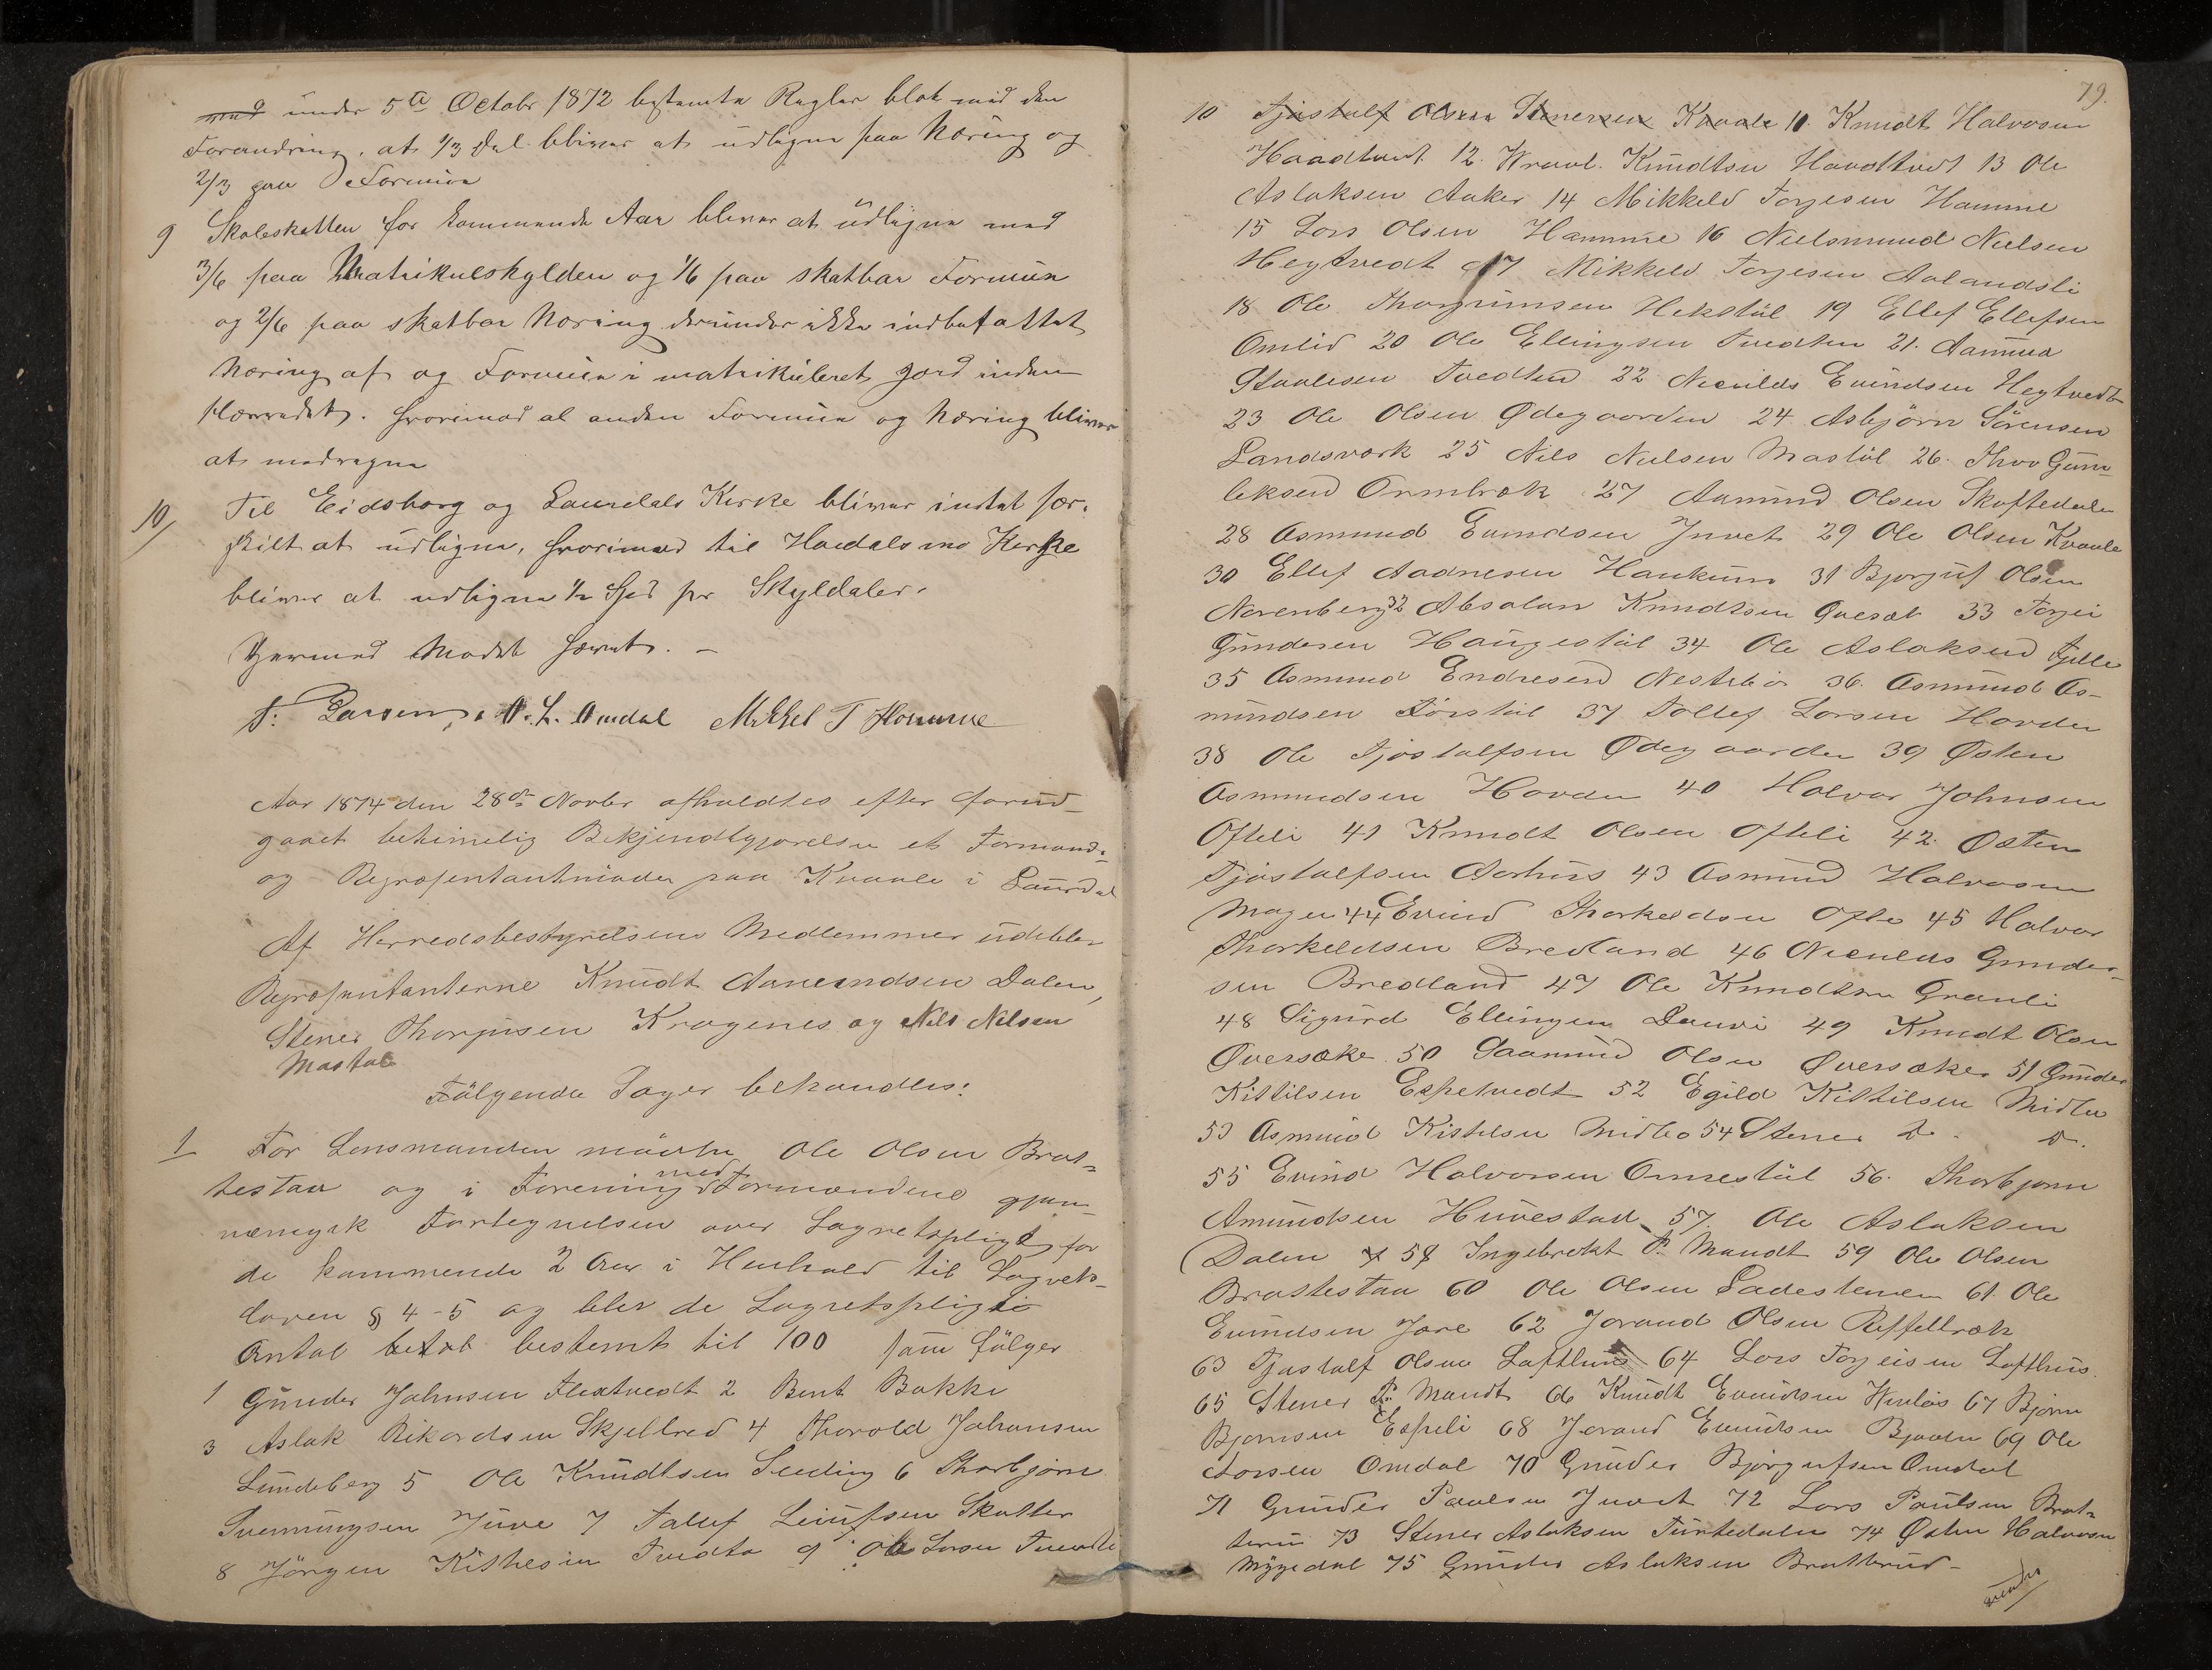 under 5te Octobr 1872 bestemte Regler blot med den
Forandring, at 1/3 Del bliver at udligne paa Næring og
2/3 paa Formue
9 Skoleskatten for kommende Aar bliver at udligne med
3/6 paa Matrikulskylden og 1/6 paa skatbar Formue
og 2/6 paa skatbar Næring derunder ikke indbefattet
Næring af og Formue i matrikuleret Jord inden
Herredet. hvorimod al anden Formue og Næring bliver
at medregne
10/ Til Eidsborg og Laurdals Kirke bliver intet sær-
skilt at udligne, hvorimod til Høidalsmo Kirke
bliver at udligne 1/2 Spd pr Skyldaler.
Hermed Mødet hævet. -
T. Larsen, O. L. Omdal Mikkel T Homme
Aar 1874 den 28de Novbr afholdtes efter forud-
gaaet betimelig Bekjendtgjørelse et Formands-
og Repræsentantmøde paa Kvaale i Laurdal
Af Herredsbestyrelsens Medlemmer udebleve
Repræsentanterne Knudt Aanundsen Dalen,
Stener Thorjusen Kragenes og Nils Nilsen
Mastøl
Følgende Sager behandles:
1 For Lensmanden mødte Ole Olsen Brat-
testaa og i Forening med Formændene gjen-
nemgik Fortegnelsen over Lagretspligtig for
de kommende 2 Aar i Henhold til Lagrets-
loven § 4-5 og blev de Lagretspligtige
Antal bestemt til 100 som følger
1 Gunder Johnsen Flextvedt 2 Bent Bakke
3 Aslak Rikardsen Skjelbred 4 Thorold Johansen
Lundeberg 5 Ole Knudtsen 6 Thorbjørn
Svenningsen Juve 7 Tallef Leiufsen Skatter
8 Jørgen Kittilsen Tvedte 9 Ole Larsen Tvedte
79.
10 Tjøstolf Olsen Stenersen Kvaale 10. Knudt Halvorsen
Haadtvedt 12. Wraal. Knudtsen Haadtvedt 13 Ole
Aslaksen Aaker 14 Mikkel Torjesen Homme
15 Lars Olsen Homme 16 Nielsmund Nielsen
Heytvedt 17 Mikkel Torjesen Aalandsli
18 Ole Thorgrimsen Hekstul 19 Ellef Ellefsen
Omlid 20 Ole Ellingsen Tvedten 21. Aamund
Staalesen Tvedten 22 Niculds Evindsen Heytvedt
23 Ole Olsen Ødegaarden 24 Asbjørn Sørensen
Landsvark 25 Nils Nielsen Mastøl 26. Thor Gun-
leksen Ormbræk 27 Aamund Olsen Skaftedalen
28 Asmund Evindsen Juvet 29 Ole Olsen Kvaale
30 Ellef Aadnesen Haukum 31 Bjørguf Olsen
Norenberg 32 Absalon Knudtsen Quesæt 33 Torjei
Gundersen Haugestul 34 Ole Aslaksen Fjelle
35 Asmund Endresen Nestebø 36. Asmund As-
mundsen Førstøl 37 Tollef Larsen Hovden
38 Ole Tjøstolfsen Ødegaarden 39 Østen
Asmundsen Hovden 40 Halvor Johnsen
Ofteli 41 Knudt Olsen Ofteli 42. Østen
Tjøstolfsen Aarhus 43 Asmund Halvorsen
Mogen 44 Evind Thorkeldsen Ofte 45 Halvor
Thorkeldsen Bredland 46 Niculds Gunder-
sen Bredland 47 Ole Knudtsen Granli
48 Sigurd Ellingsen Dauvi 49 Knudt Olsen
Øversaker 50 Saamund Olsen Øversaker 51 Gunder
Kittilsen Espetvedt 52 Egild Kittilsen Midbø
53 Asmund Kittilsen Midbø 54 Stener D. D.
55 Evind Halvorsen Ormestul 56. Thorbjørn
Amundsen Huvestad 57. Ole Aslaksen
Dalen 58 Ingebrekt P. Mandt 59 Ole Olsen
Brattestaa 60 Ole Olsen Ladestenen 61. Ole
Evindsen Jore 62 Jorand Olsen Reffelbræk
63 Tjøstolf Olsen Lofthus 64 Lars Torjeisen Lofthus.
65 Stener P. Mandt 66 Knudt Evindsen 67 Bjørn
Bjørnsen Espeli 68 Jorand Evindsen Bjaaen 69 Ole
Larsen Omdal 70 Gunder Bjørgufsen Omdal
71 Gunder Paulsen Juvet 72 Lars Paulsen Brat-
terud 73 Stener Aslaksen Turtedalen 74 Østen Halvorsen
Myyedal 75 Gunder Aslaksen Bratterud -